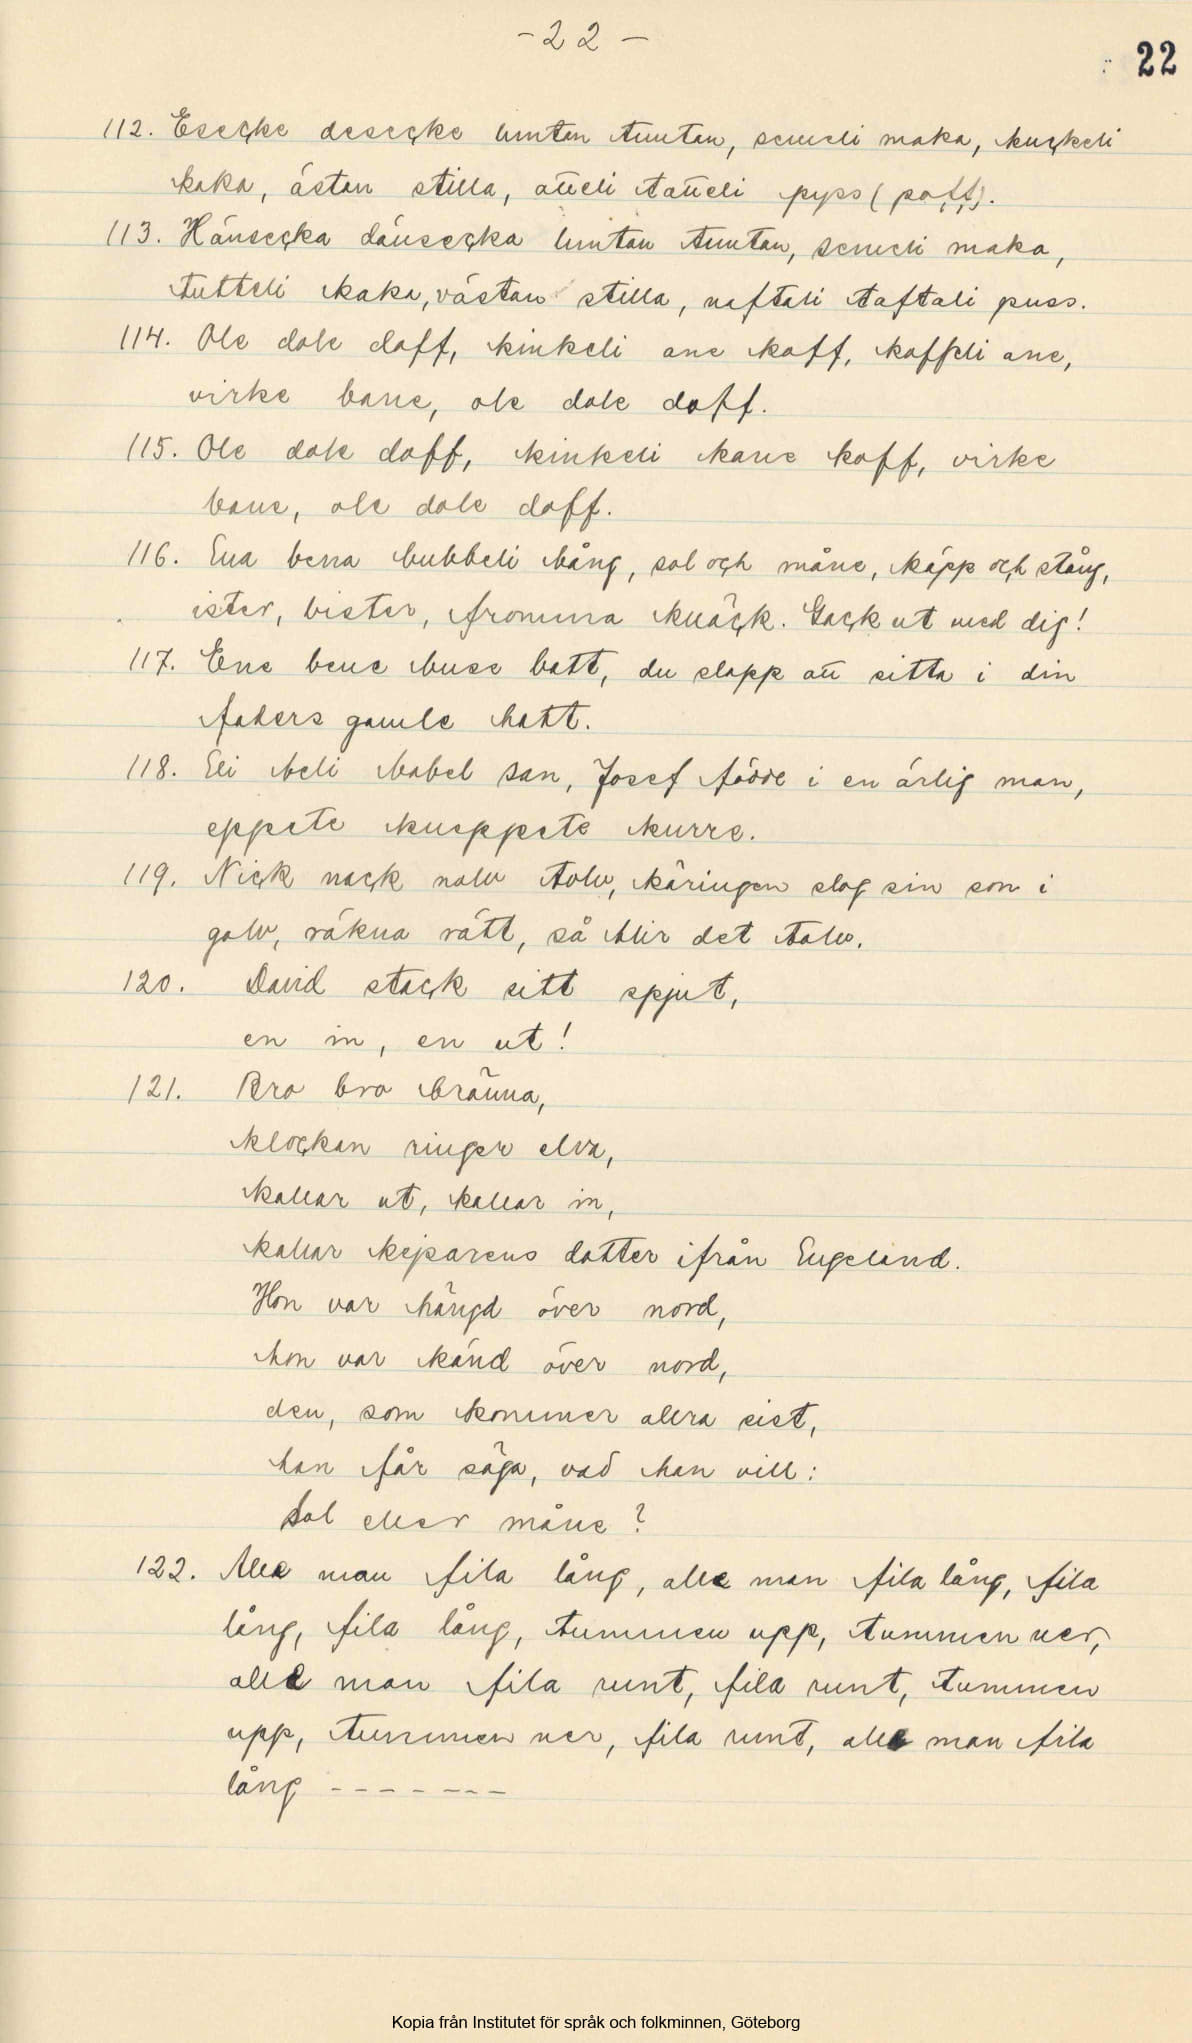 - 22 -
22
112. Esecke desecke luntan tuntan, semeli maka, kuckeli
kaka, ästan stilla, atteli tatteli pyss (poff).
113. Hänsecka dänsecka luntan tuntan, semeli maka,
tutteli kaka, västan stilla, naftali taftali puss.
114. Ole dole doff, kinkeli ane koff, koffeli ane,
virke bane, ole dole doff.
115. Ole dole doff, kinkeli kane koff, virke
bane, ole dole doff.
116. Ena bena bubbeli bång, sol och måne, käpp och stång,
ister, bister, fromma knäck. Gack ut med dig!
117. Ene bene buse batt, du slapp att sitta i din
faders gamle hatt.
118. Eli beli babel san, Josef födde i en ärlig man,
eppete kneppete knurre.
119. Nick nack nolv tolv, käringen slog sin son i
golv, räkna rätt, så blir det tolv.
120. David stack sitt spjut,
en in, en ut!
121. Bro bro bränna,
klockan ringer elva,
kallar ut, kallar in,
kallar kejsarens dotter ifrån Engeland.
Hon var hängd över nord,
hon var känd över nord,
den, som kommer allra sist,
han får säga, vad han vill:
Sol eller måne?
122. Alle man fila lång, alle man fila lång, fila
lång, fila lång, tummen upp, tummen ner,
alle man fila runt, fila runt, tummen
upp, tummen ner, fila runt, alle man fila
lång - - - - - - -
Kopia från Institutet för språk och folkminnen, Göteborg